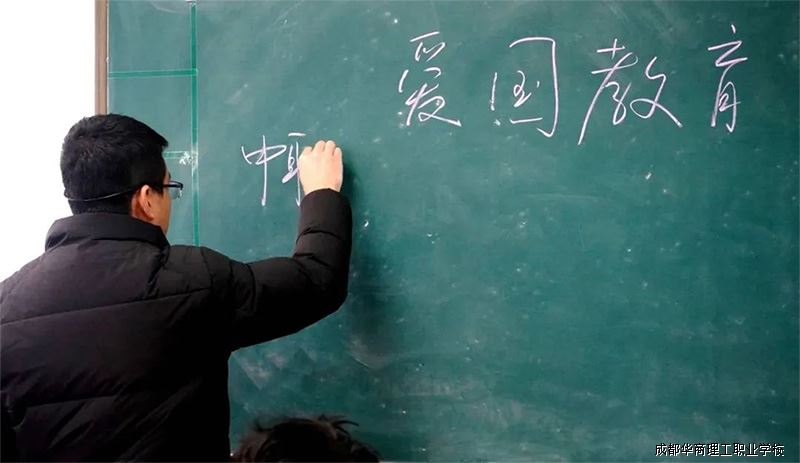 爱国教育
中
成都华商理工职业学校